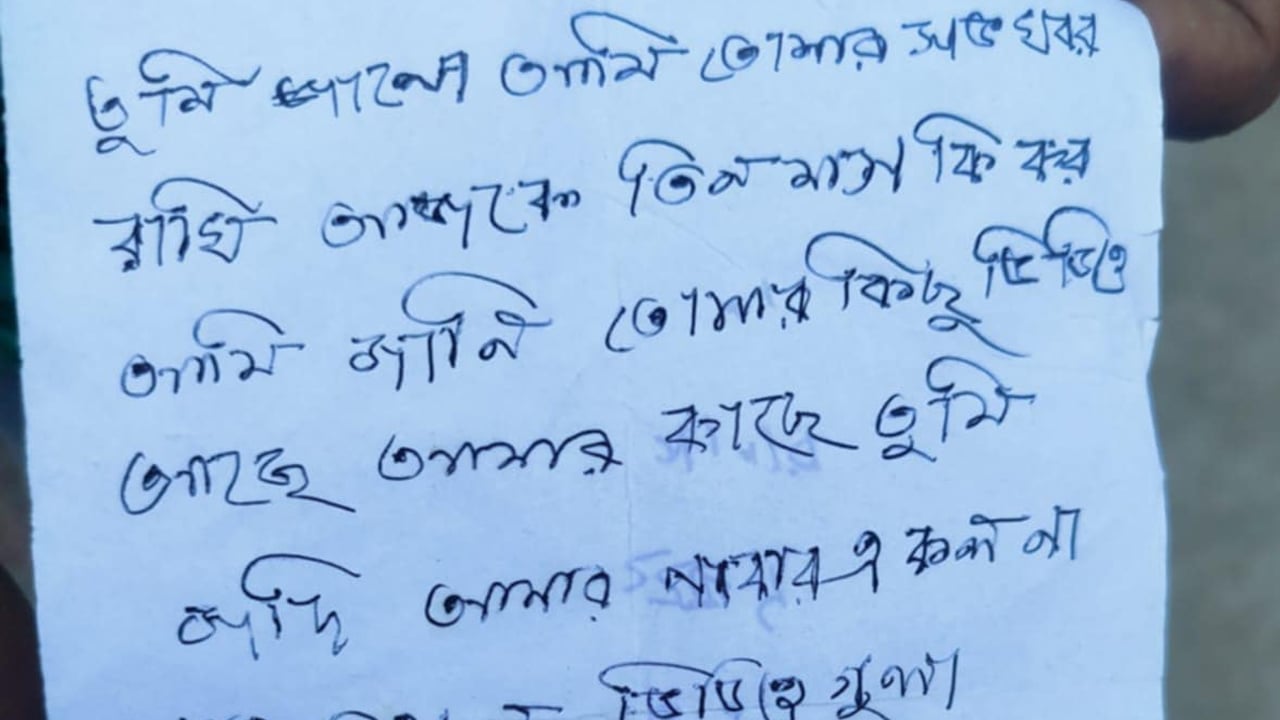 তুমি জানো আমি তোমার সব খবর
রাখি আজকে তিন মাস কি কর
আমি জানি তোমার কিছু ভিডিও
আছে আমার কাছে তুমি
জদি আমার নাবার এ কল না
ভিডিও গুলা